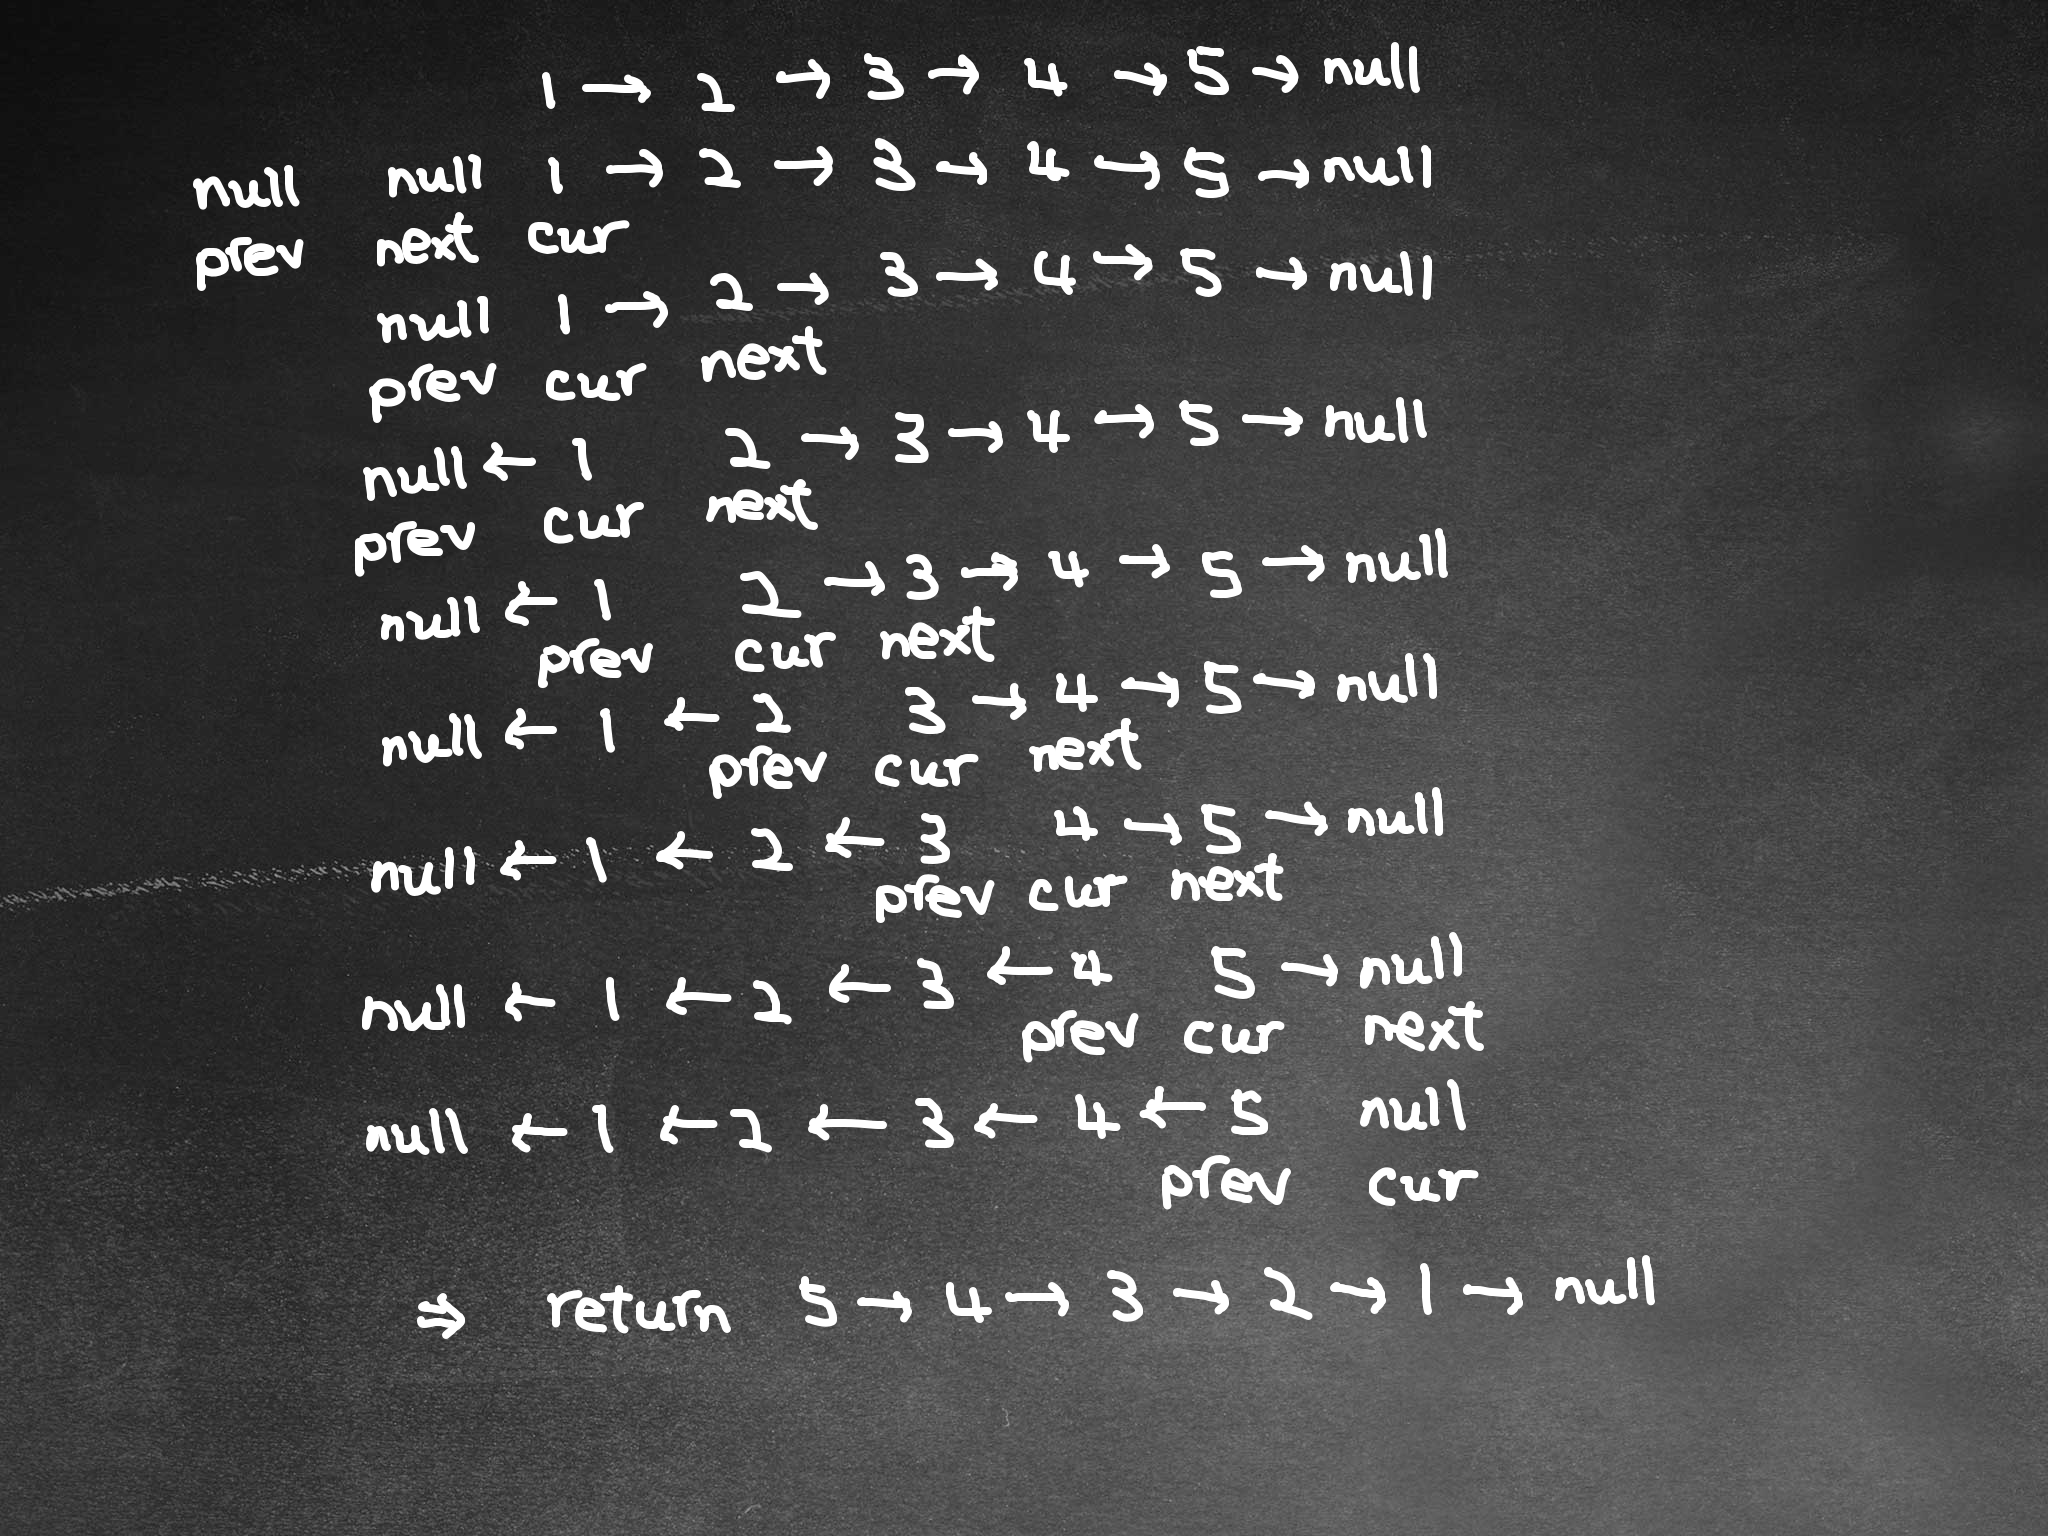 1 → 2 → 3 → 4 → 5 → null
null null 1 → 2 → 3 → 4 → 5 → null
prev next cur
null 1 → 2 → 3 → 4 → 5 → null
prev cur next
null ← 1 2 → 3 → 4 → 5 → null
prev cur next
null ← 1 2 → 3 → 4 → 5 → null
prev cur next
null ← 1 ← 2 3 → 4 → 5 → null
prev cur next
null ← 1 ← 2 ← 3 4 → 5 → null
prev cur next
null ← 1 ← 2 ← 3 ← 4 5 → null
prev cur next
null ← 1 ← 2 ← 3 ← 4 ← 5 null
prev cur
⇒ return 5 → 4 → 3 → 2 → 1 → null